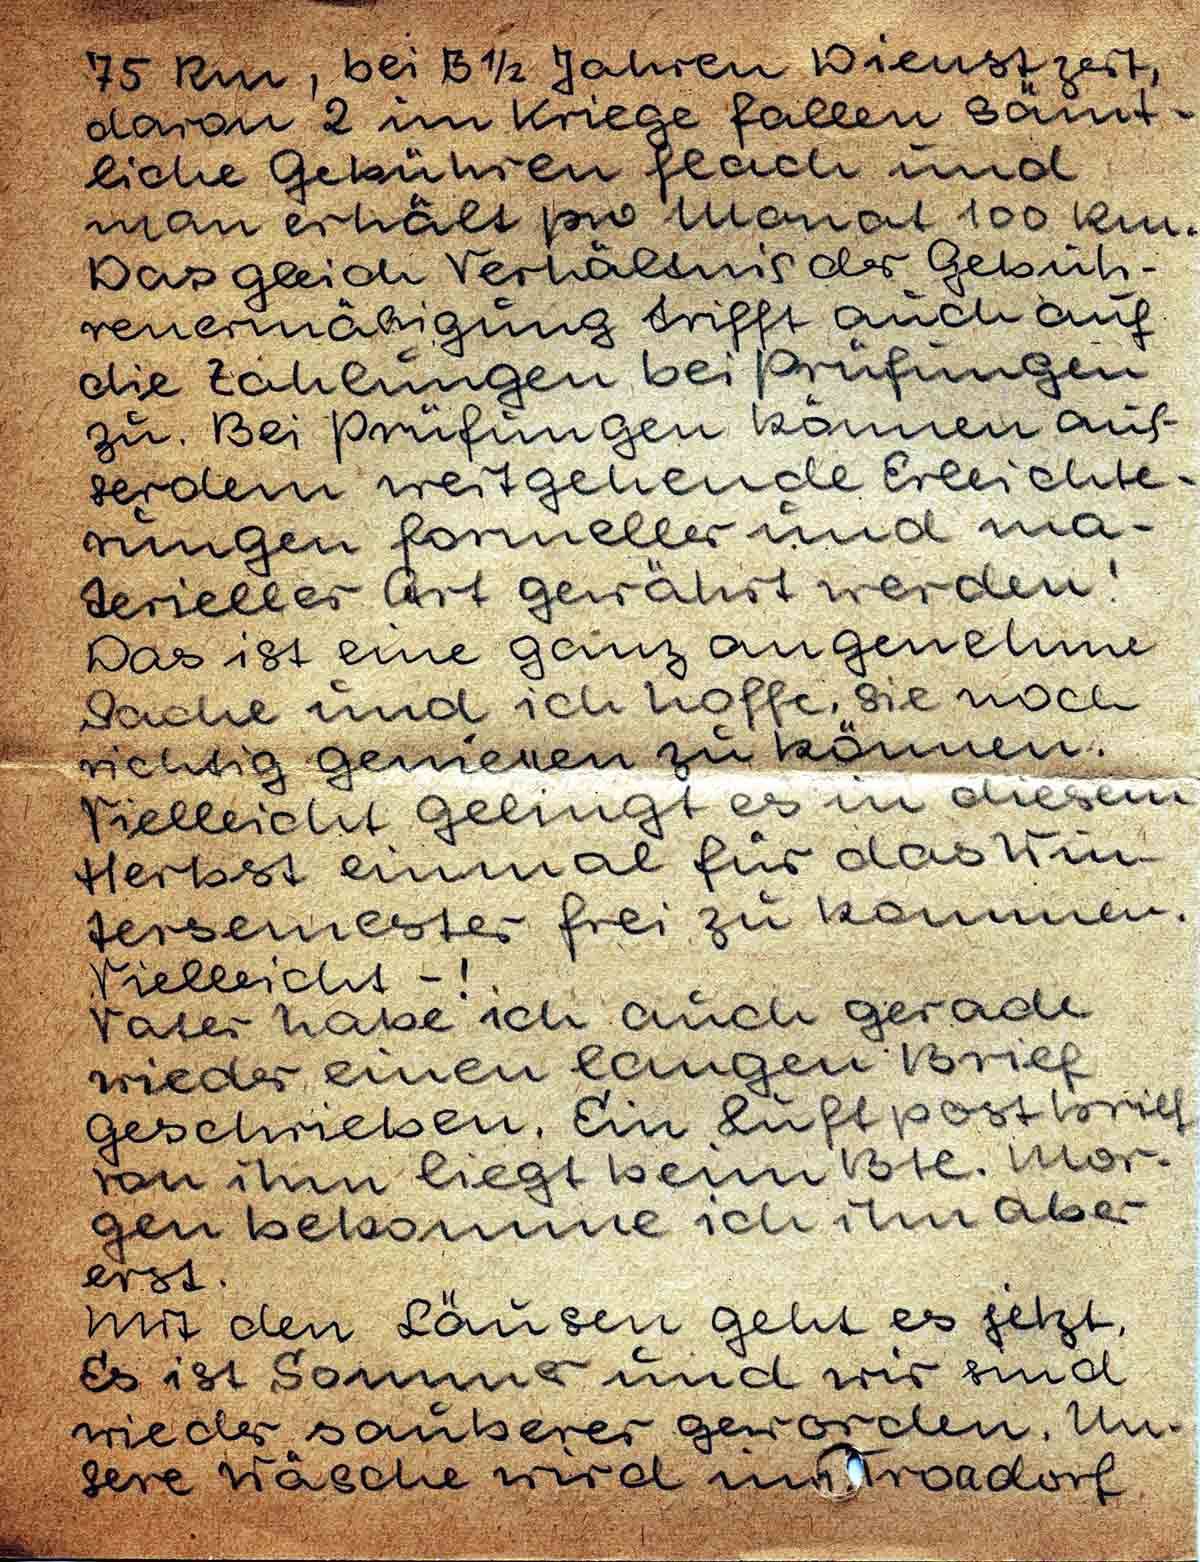 75 Rm, bei 3 1/2 Jahren Dienstzeit,
davon 2 im Kriege fallen sämt-
liche Gebühren flach und
man erhält pro Monat 100 Rm.
Das gleich Verhältnis der Gebüh-
renermäßigung trifft auch auf
die Zahlungen bei Prüfungen
zu. Bei Prüfungen können aus-
serdem weitgehende Erleichte-
rungen formeller und ma-
terieller Art gewährt werden!
Das ist eine ganz angenehme
Sache und ich hoffe, sie noch
richtig genießen zu können.
Vielleicht gelingt es in diesem
Herbst einmal für das Win-
tersemester frei zu kommen.
Vielleicht -!
Vater habe ich auch gerade
wieder einen langen Brief
geschrieben. Ein Luftpostbrief
von ihm liegt beim Btl. Mor-
gen bekomme ich ihn aber
erst.
Mit den Läusen geht es jetzt.
Es ist Sommer und wir sind
wieder sauberer geworden. Un-
sere Wäsche wird im